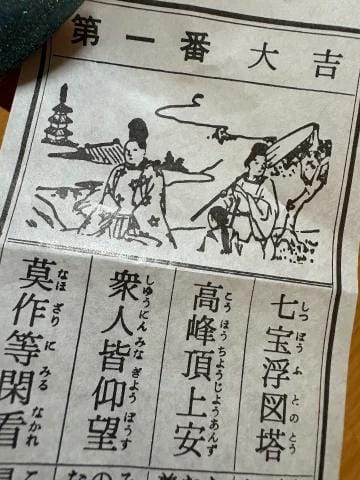 第一番 大吉
七宝浮図塔
しつぽうふとのとう
高峰頂上安
とうほうちようじようあんず
衆人皆仰望
しゆうにんみなぎようぼうす
莫作等閑看
なほざりにみるなかれ